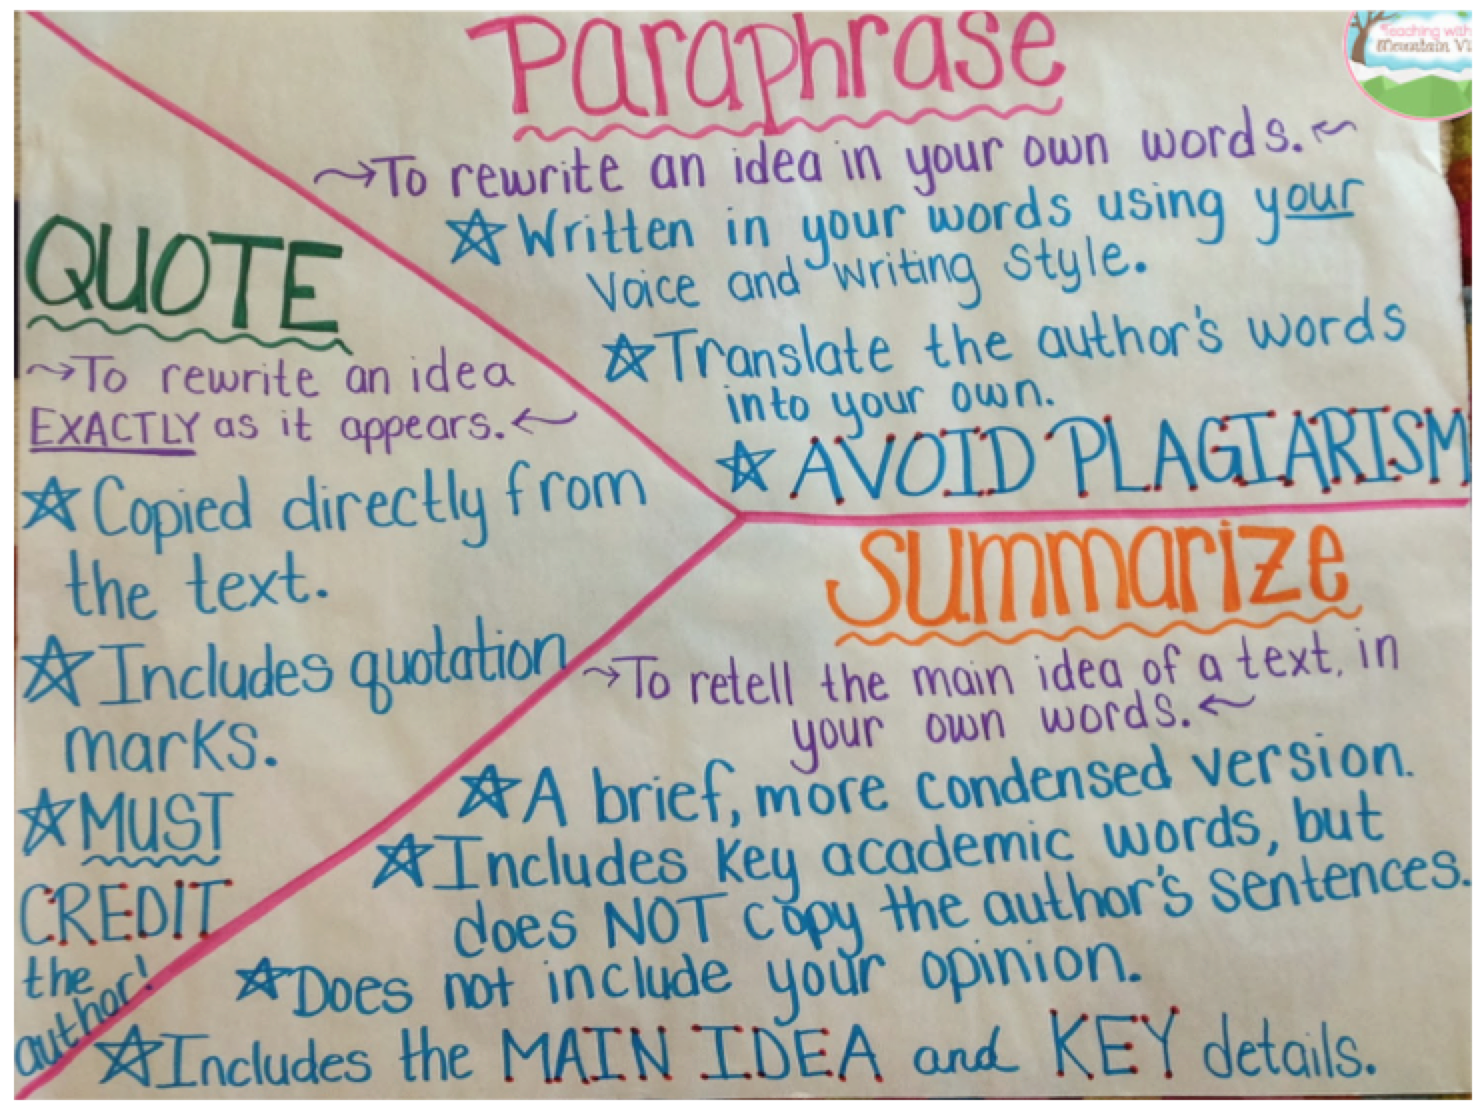 Paraphrase
To rewrite an idea in your own words.
Written in your words using your
voice and writing style.
Translate the author's words
into your own.
AVOID PLAGIARISM
QUOTE
To rewrite an idea
EXACTLY as it appears.
Copied directly from
the text.
Includes quotation
marks.
MUST
CREDIT
the
author!
Summarize
To retell the main idea of a text, in
your own words.
A brief, more condensed version.
Includes key academic words, but
does NOT copy the author's sentences.
Does not include your opinion.
Includes the MAIN IDEA and KEY details.
Teaching with
Mountain Vi